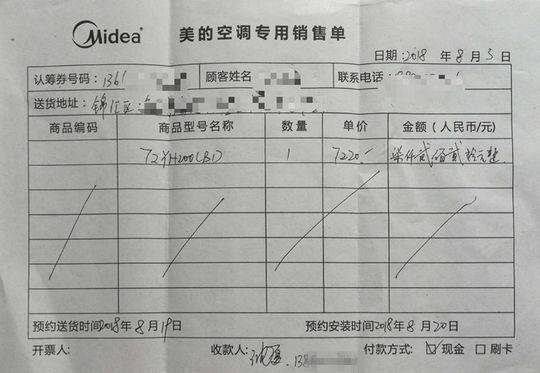 Midea 美的空调专用销售单
日期：2018 年 8 月 5 日
认筹券号码：1361 顾客姓名 联系电话：
送货地址：锦江区
商品编码 商品型号名称 数量 单价 金额（人民币/元）
72YH200(B1) 1 7220.- 柒仟贰佰贰拾元整
预约送货时间2018年 8 月 19日 预约安装时间2018年 8 月20日
开票人： 收款人： 138 付款方式：☑ 现金 □ 刷卡